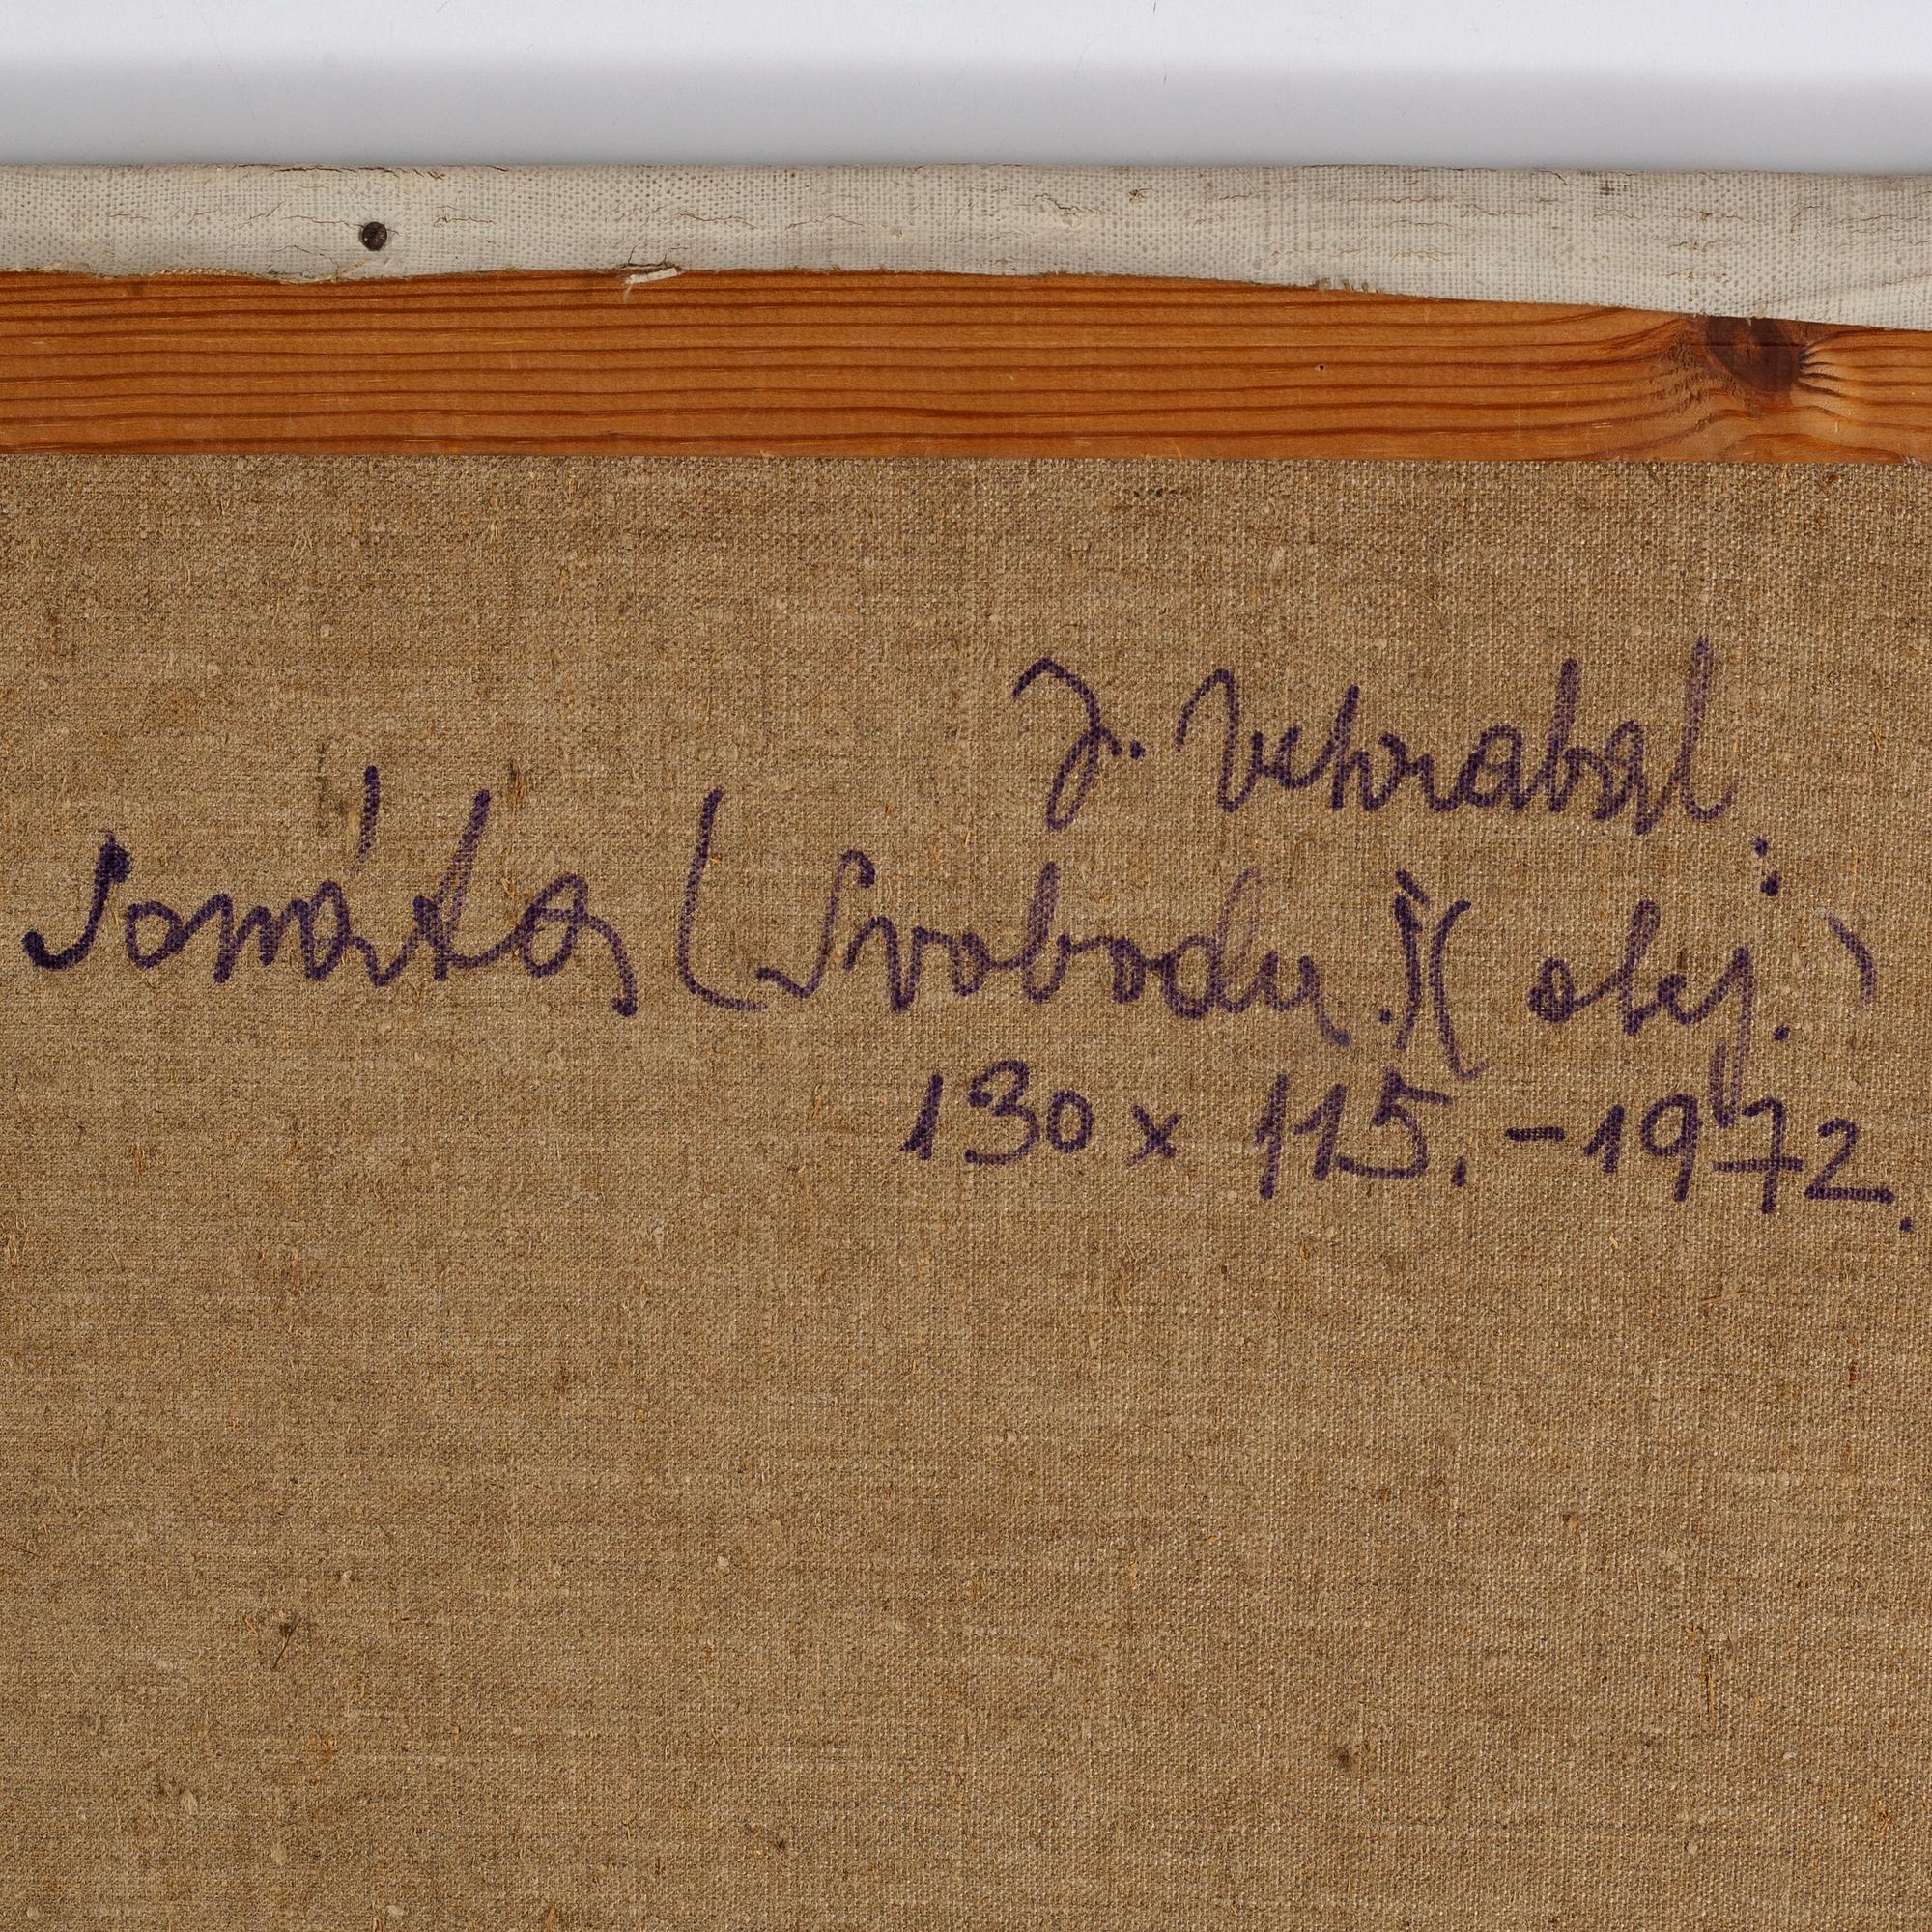 J. Vehrabal:
Jonáša (Svobodu.)(olej.)
130 x 115. – 1972.